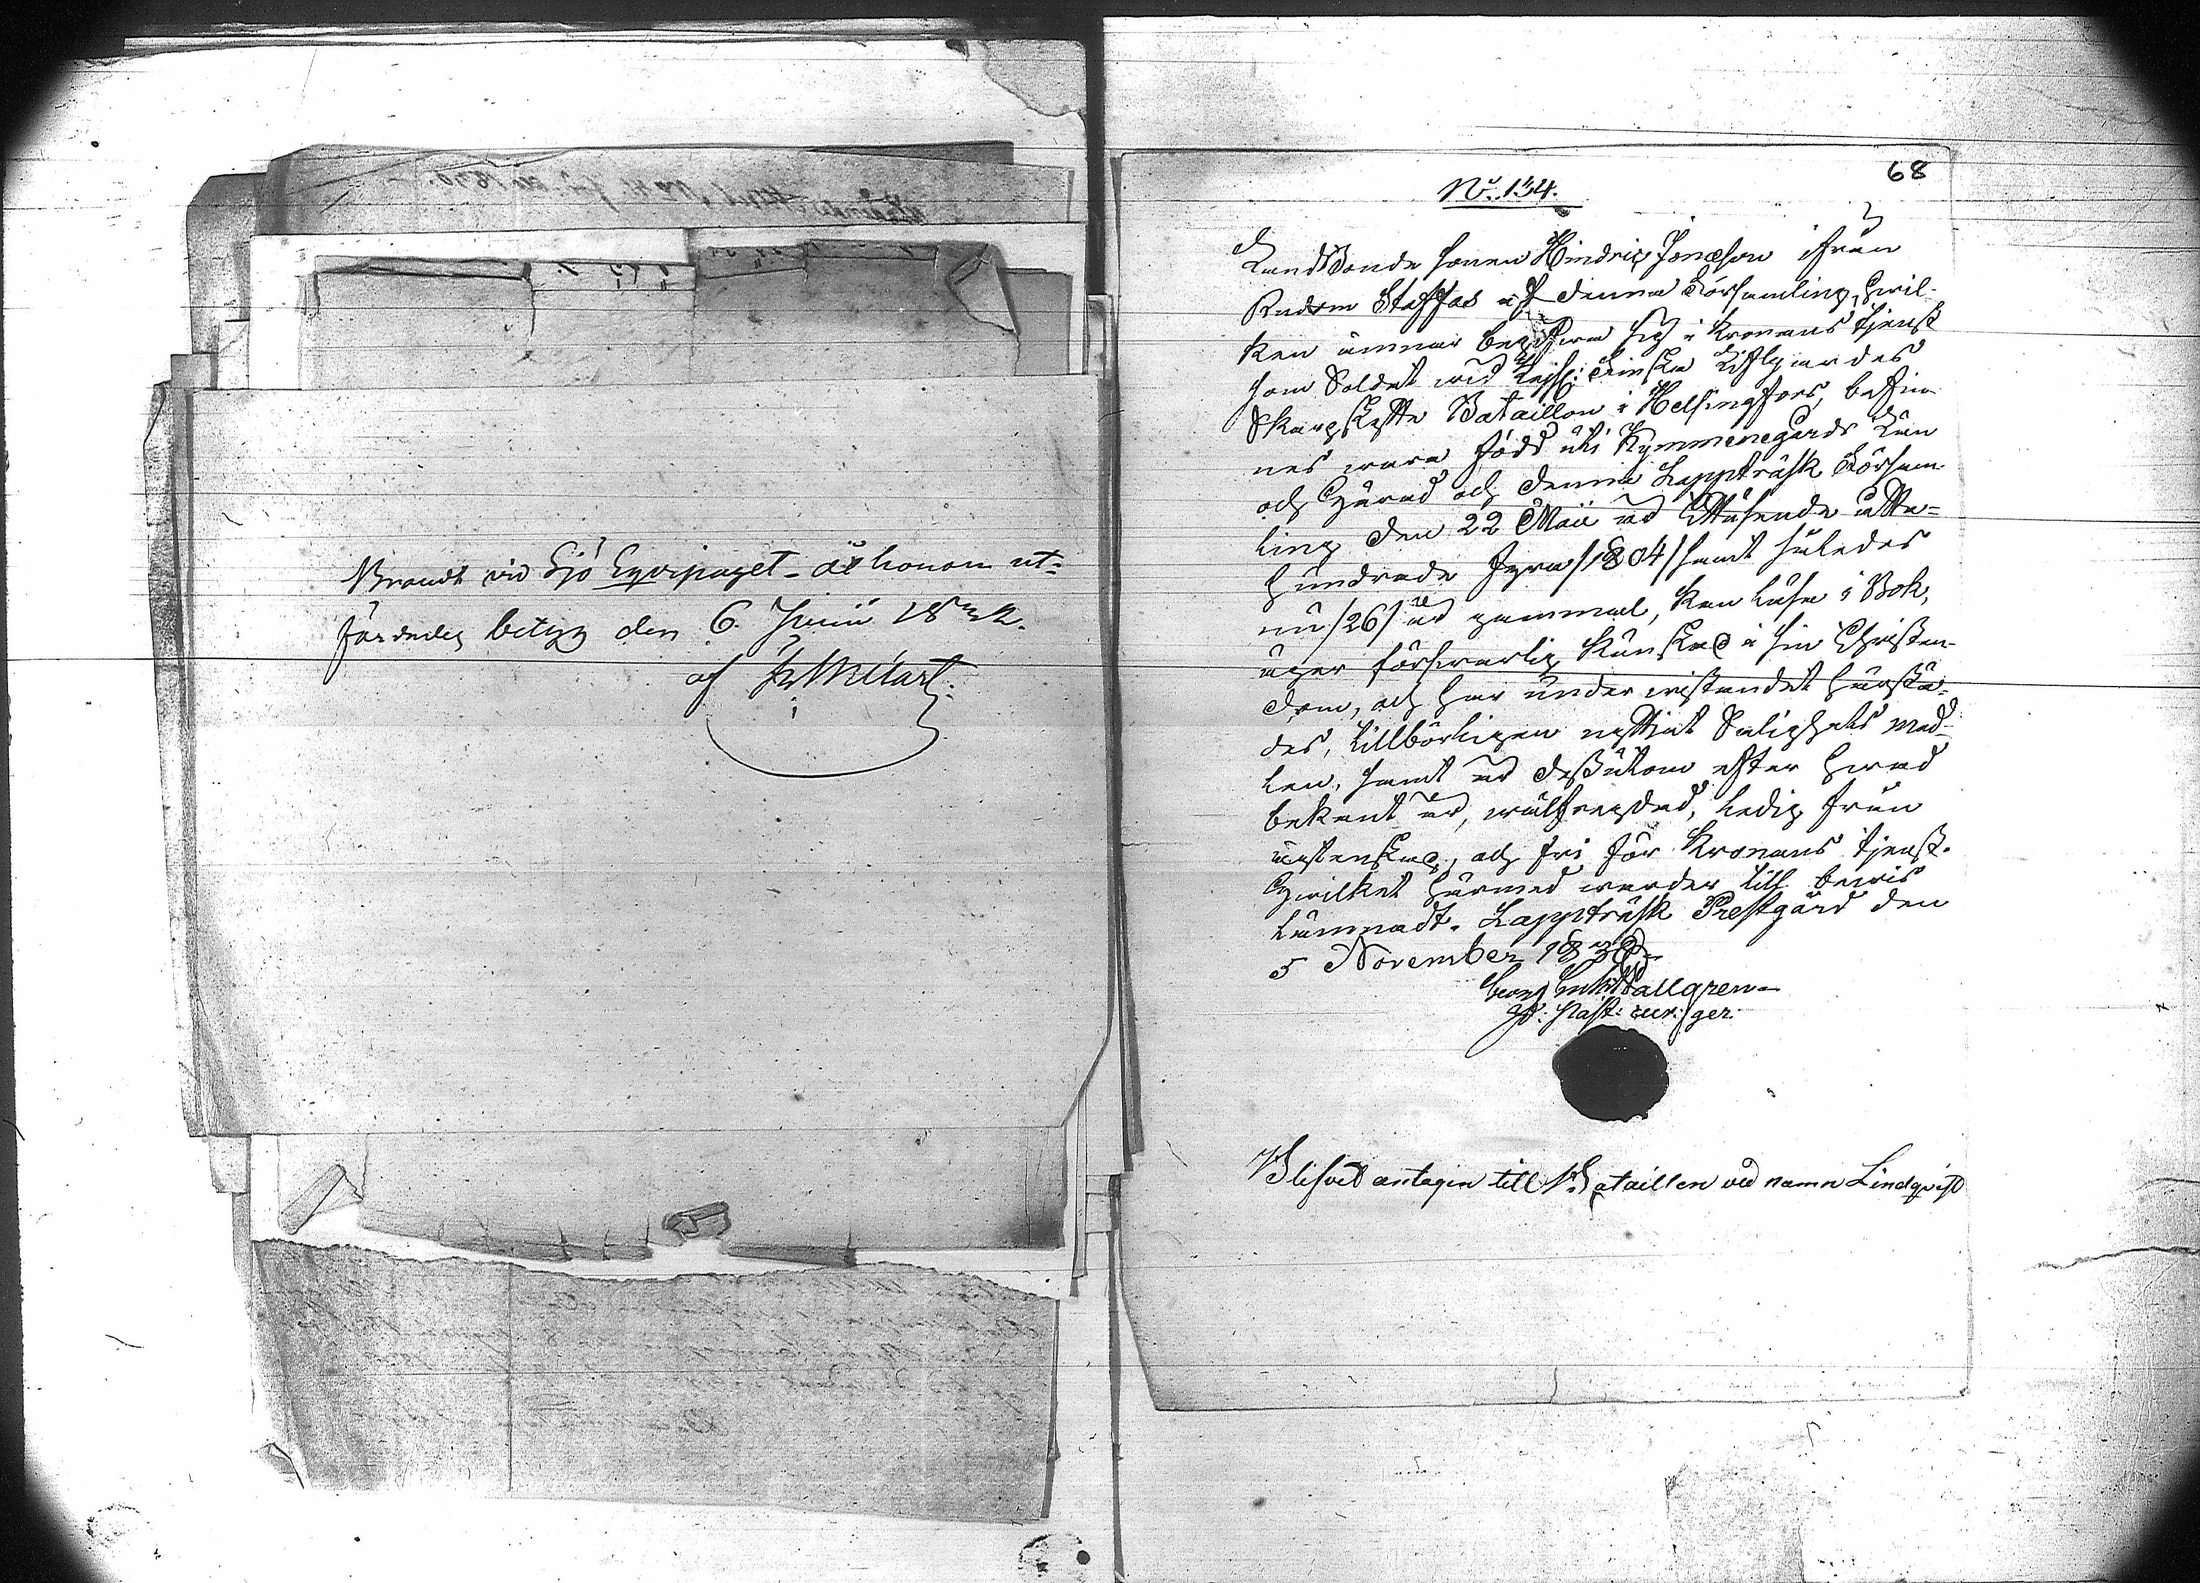 Brandt vid Sjö Eqvipaget är honom ut-
färdadez betyg den 6. Junii 1832.
af
68
No. 134.
Landtbonde sonen Hindric Jonæson ifrån
Rudom Staffas af denna Församling, hwil-
ken ämnar begifwa sig i Kronans tjenst
som Soldat wid Kejs: Finska Lifgardes
Skarpskytte Bataillon i Helsingfors, befin-
nes wara född uti Kymmenegårds Län
och Härad och denna Lappträsk Församl-
ling den 22 Maii år Ettusende åtta-
hundrade fyra /1804/ samt således
nu /26/ år gammal, kan läsa i Bok,
äger försvarlig kunskap i sin Christen-
dom, och har under wistandet härstä-
des, tillbörligen nyttjat Salighets med-
len, samt är dessutom efter hwad
bekant är, wälfrejdad, ledig från
ägtenskap, och fri för Kronans tjenst.
Hwilket härmed warder till bewis
lämnadt. Lappträsk Prestgård den
5 November 1830.
Georg Wallgren
Past:
Blifvit antagen till Bataillen vid namn Lindqvist